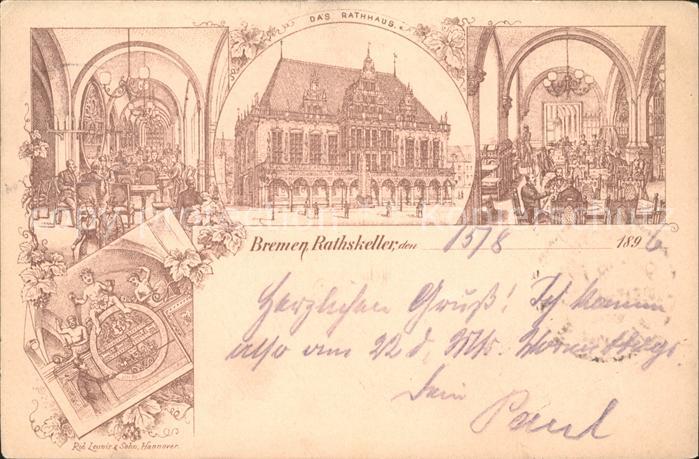 DAS RATHHAUS.
Bremen, Rathskeller, den 15/8 1896
Herzlichen Gruß! Ich komme
also am 22 d. Mts. Vormittags.
Dein
Paul
Rid. Lemnis & Sohn, Hannover.